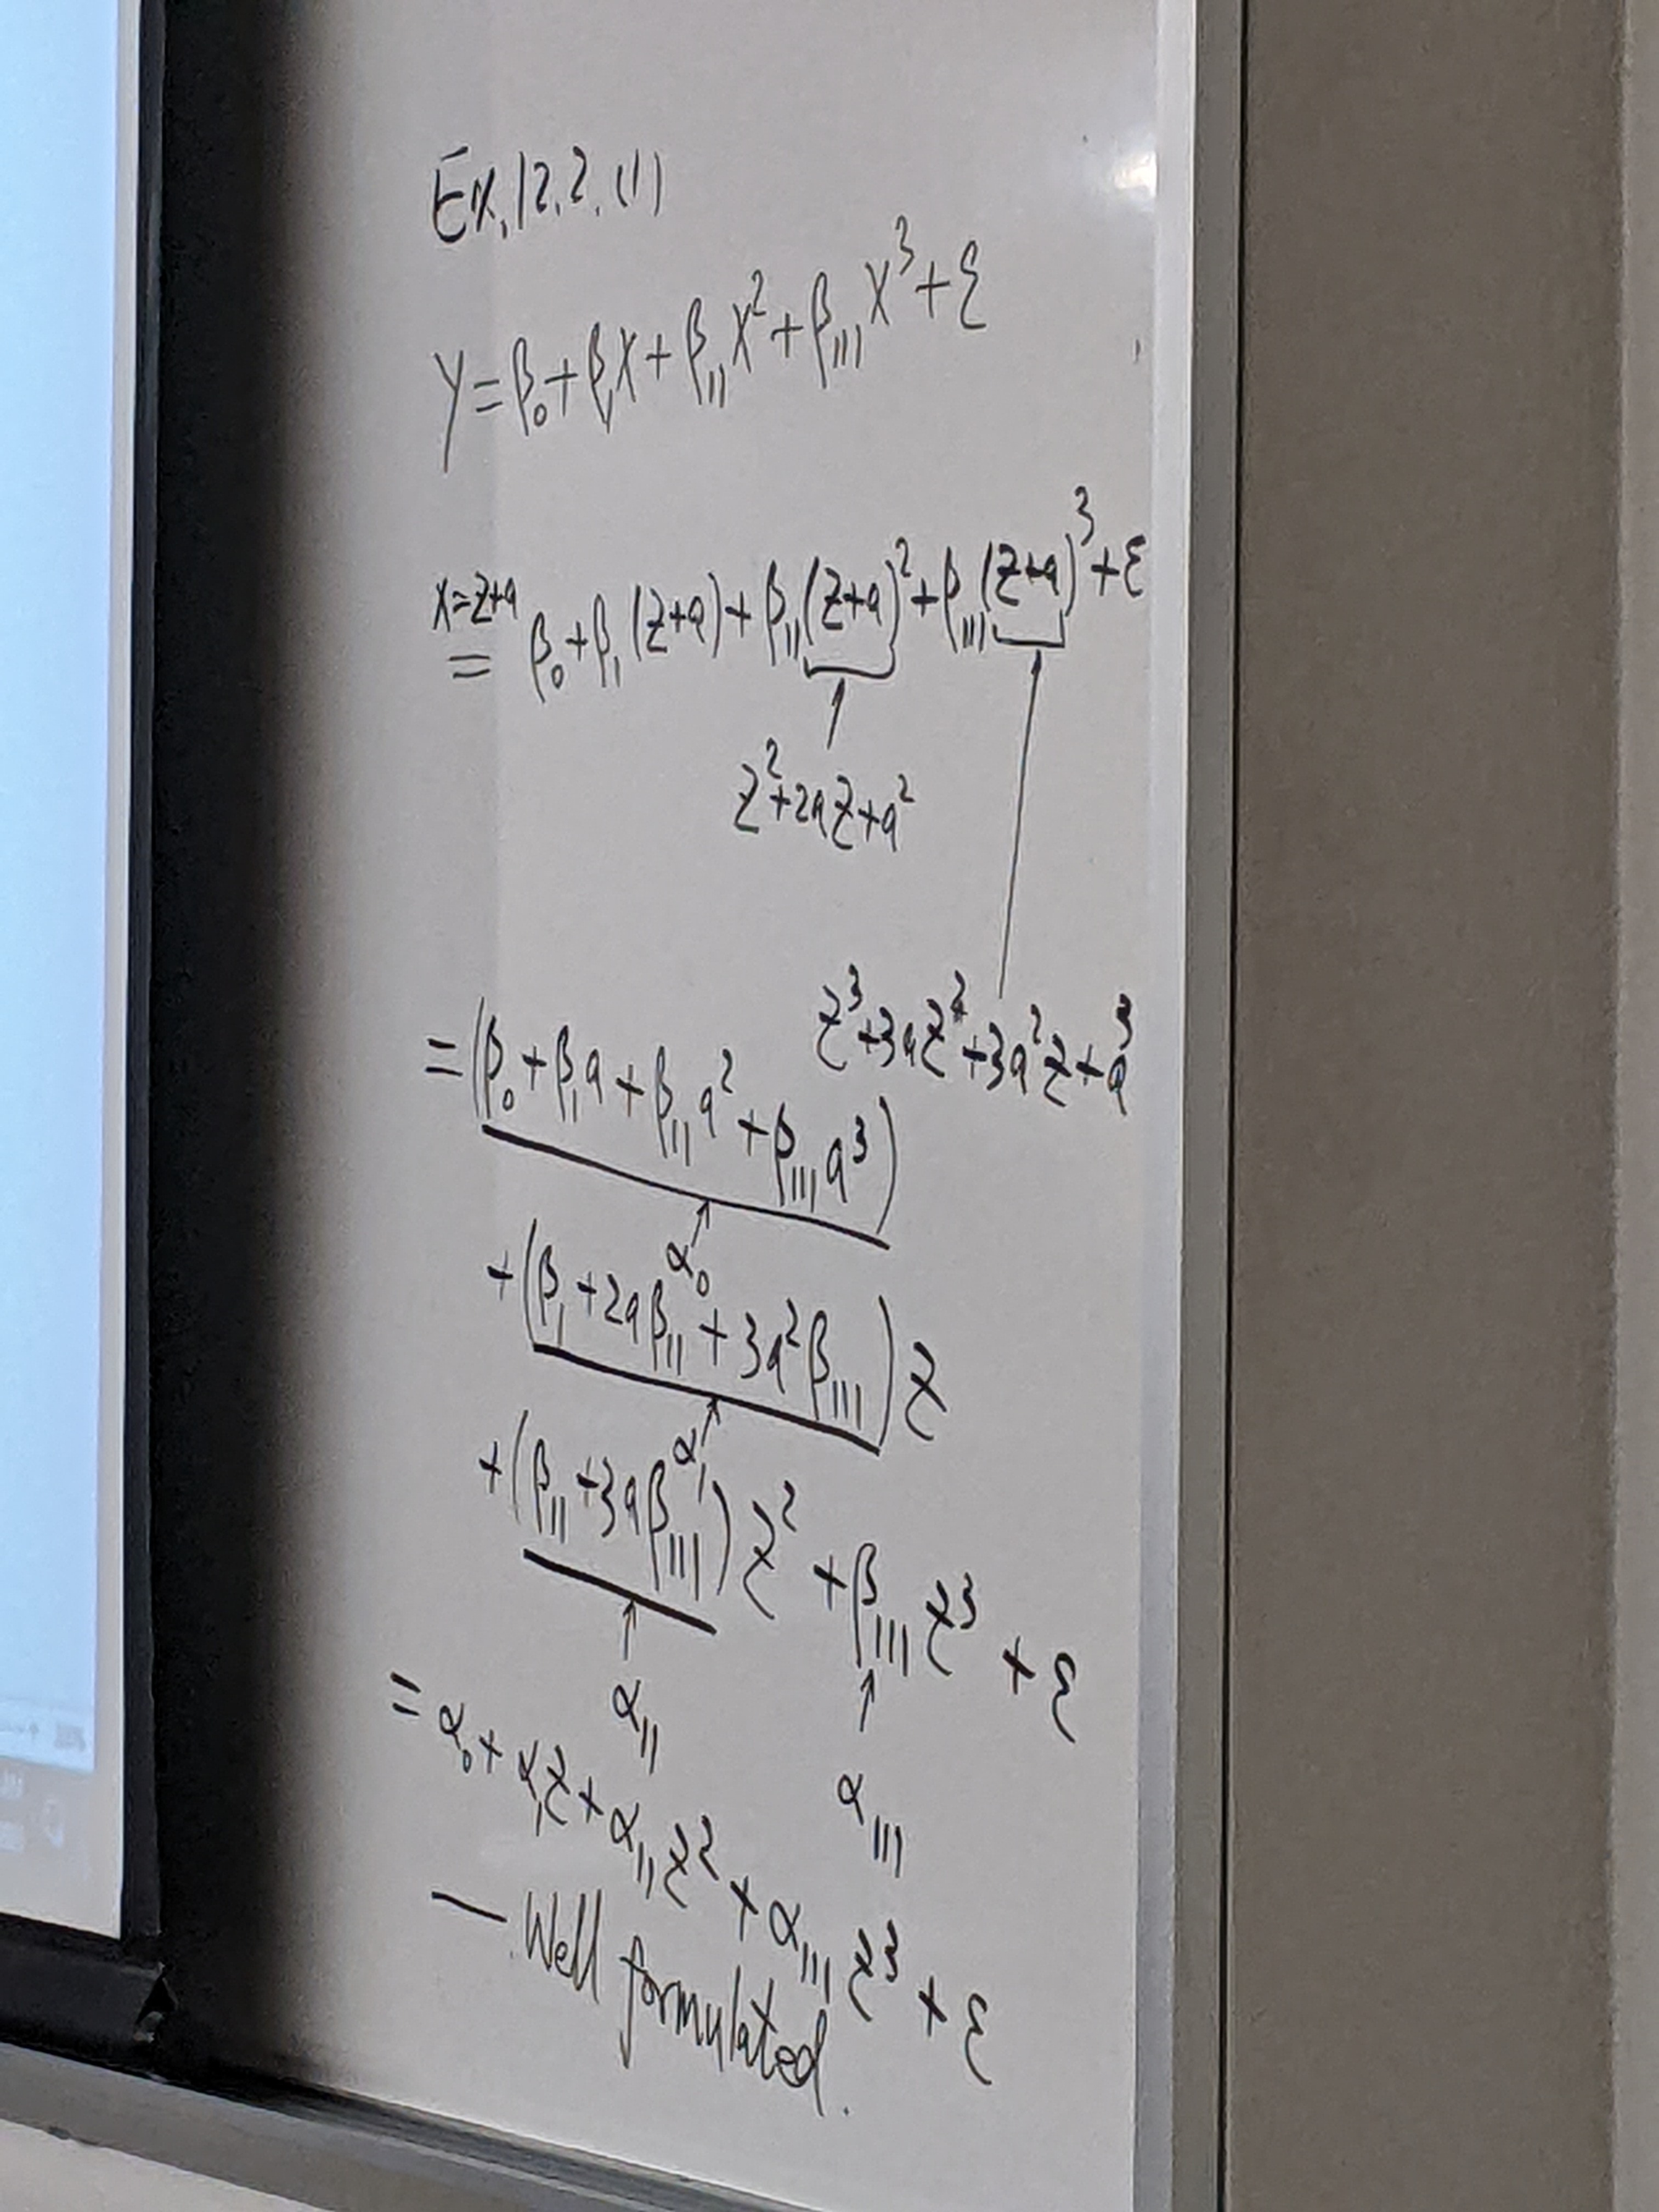 Ex. 12.2. (1)
Y = β₀ + β₁X + β₁₁X² + β₁₁₁X³ + ε
X=Z+a
= β₀ + β₁(Z+a) + β₁₁(Z+a)² + β₁₁₁(Z+a)³ + ε
Z²+2aZ+a²
Z³+3aZ²+3a²Z+a³
= (β₀ + β₁a + β₁₁a² + β₁₁₁a³)
α₀
+ (β₁ + 2aβ₁₁ + 3a²β₁₁₁) Z
α₁
+ (β₁₁ + 3aβ₁₁₁) Z² + β₁₁₁Z³ + ε
α₁₁ α₁₁₁
= α₀ + α₁Z + α₁₁Z² + α₁₁₁Z³ + ε
— Well formulated.